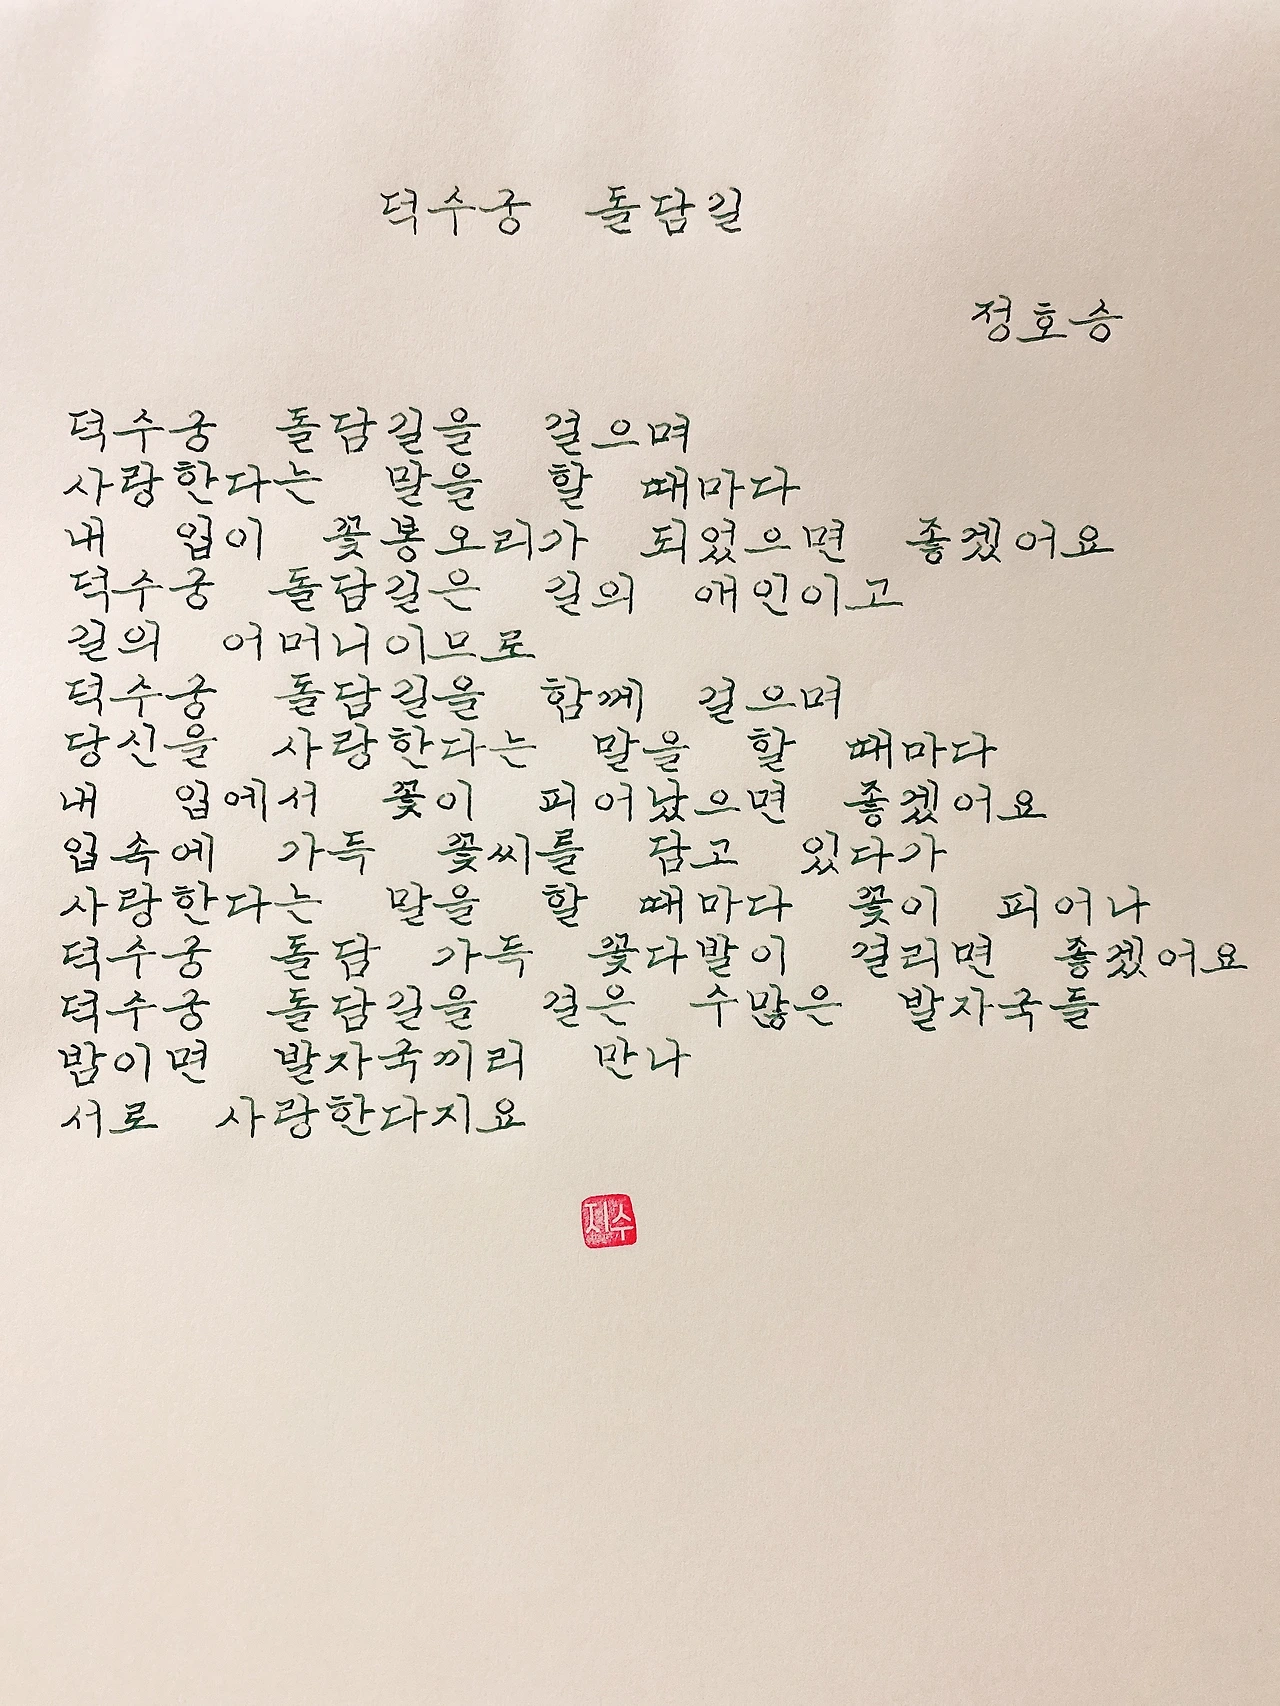 덕수궁 돌담길
정호승
덕수궁 돌담길을 걸으며
사랑한다는 말을 할 때마다
내 입이 꽃봉오리가 되었으면 좋겠어요
덕수궁 돌담길은 길의 애인이고
길의 어머니이므로
덕수궁 돌담길을 함께 걸으며
당신을 사랑한다는 말을 할 때마다
내 입에서 꽃이 피어났으면 좋겠어요
입속에 가득 꽃씨를 담고 있다가
사랑한다는 말을 할 때마다 꽃이 피어나
덕수궁 돌담 가득 꽃다발이 걸리면 좋겠어요
덕수궁 돌담길을 걸은 수많은 발자국들
밤이면 발자국끼리 만나
서로 사랑한다지요
지수